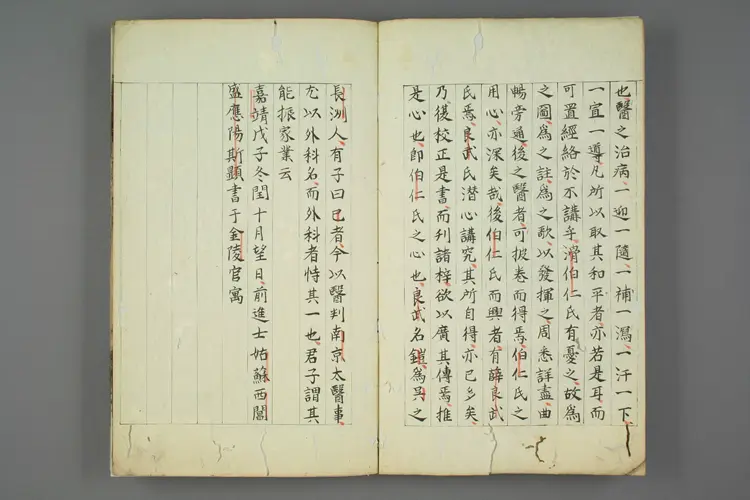 也醫之治病一迎一隨一補一瀉一汗一下
一宣一導凡所以取其和平者亦若是耳而
可置經絡於不講乎滑伯仁氏有憂之故為
之圖為之註為之歌以發揮之周悉詳盡曲
暢旁通後之醫者可披卷而得焉伯仁氏之
用心亦深矣哉後伯仁氏而興者有薛良武
氏焉良武氏潛心講究其所自得亦已多矣
乃復校正是書而刊諸梓欲以廣其傳焉推
是心也即伯仁氏之心也良武名鎧為吳之
長洲人有子曰已者今以醫判南京太醫事
尤以外科名而外科者恃其一也君子謂其
能振家業云
嘉靖戊子冬閏十月望日前進士姑蘇西閶
盛應陽斯顯書于金陵官寓